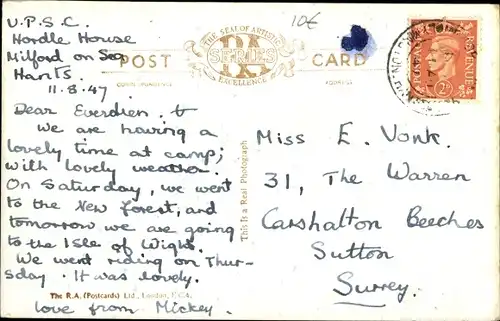 U.P.S.C.
Hordle House
Milford on Sea
Hants.
11.8.47
10€
THE SEAL OF ARTISTIC
RA
SERIES
EXCELLENCE
POST CARD
ADDRESS
REVENUE
Dear Everdien.
We are having a
lovely time at camp;
with lovely weather.
On Saturday, we went
to the New Forest, and
tomorrow we are going
to the Isle of Wight.
We went riding on Thur-
sday. It was lovely.
love from Mickey.
This is a Real Photograph
The R.A. (Postcards) Ltd., London, E.C.4.
Miss E. Vonk.
31, The Warren
Carshalton Beeches
Sutton
Surrey.